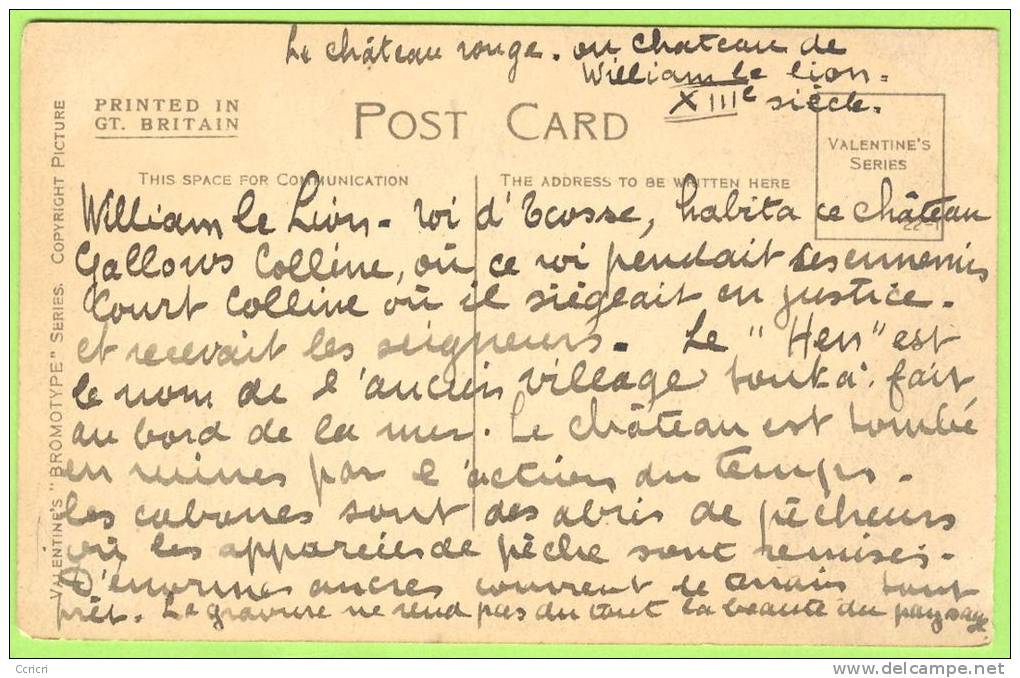 Le château rouge. ou chateau de
William le lion =
XIIIe siècle.
PRINTED IN
GT. BRITAIN
POST CARD
VALENTINE'S
SERIES
THIS SPACE FOR COMMUNICATION
THE ADDRESS TO BE WRITTEN HERE
VALENTINE'S "BROMOTYPE" SERIES. COPYRIGHT PICTURE
William le Lion - roi d'Ecosse, habita ce château
Gallows Colline, où ce roi pendait ses ennemis
Court Colline où il siégeait en justice -
et recevait les seigneurs - Le "Hen" est
le nom de l'ancien village tout à fait
au bord de la mer. Le château est tombé
en ruines par l'action du temps -
les cabanes sont des abris de pêcheurs
où les appareils de pêche sont remisés -
D'énormes ancres couvrent le terrain tout
près. La gravure ne rend pas du tout la beauté du paysage.
Ccricri
www.delcampe.net